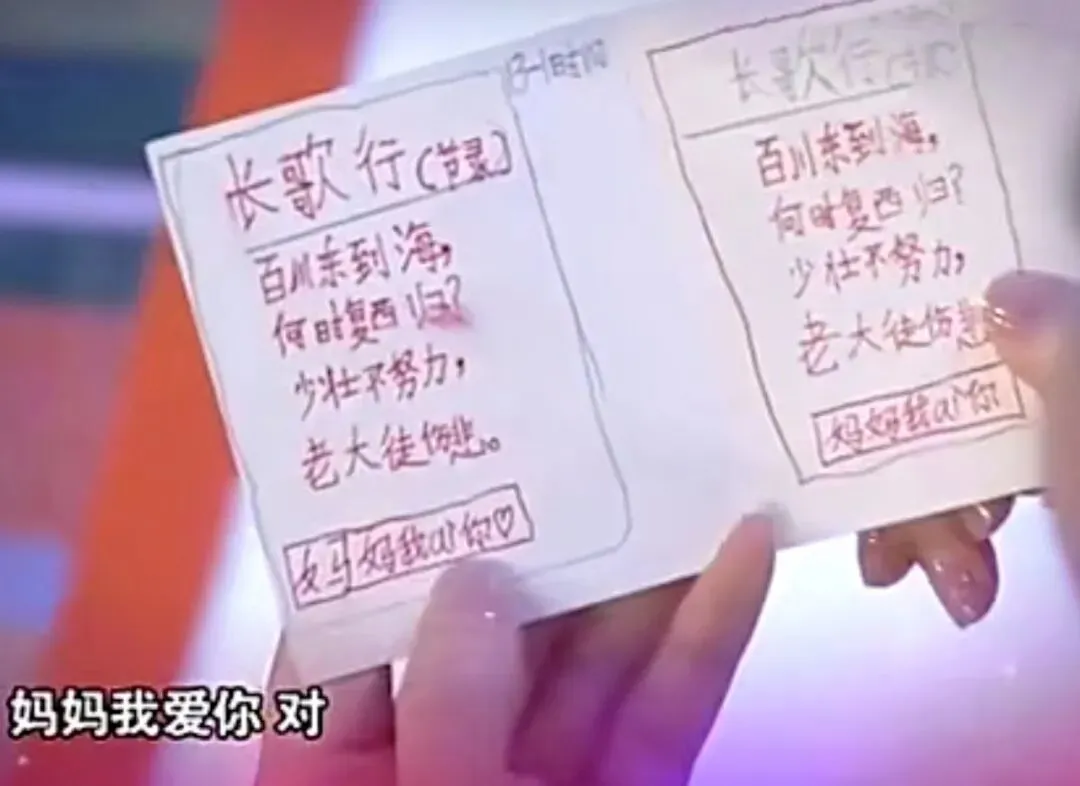 长歌行(节录)
百川东到海,
何时复西归?
少壮不努力,
老大徒伤悲。
妈妈我ai你♡
长歌行
百川东到海,
何时复西归?
少壮不努力,
老大徒伤悲
妈妈我ai你
妈妈我爱你 对